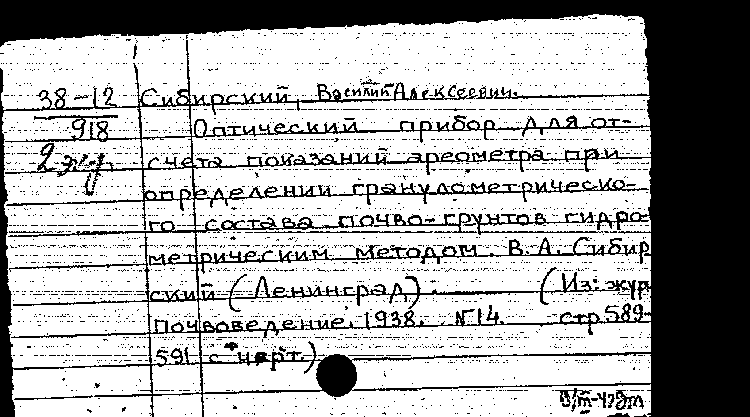 38-12 Сибирский, Василий Алексеевич.
918 Оптический прибор для от-
2 экз. счета показаний ареометра при
определении гранулометрическо-
го состава почво-грунтов гидро-
метрическим методом. В. А. Сибир
ский (Ленинград). (Из: жур
Почвоведение. 1938. №14. стр. 589-
591 с черт.)